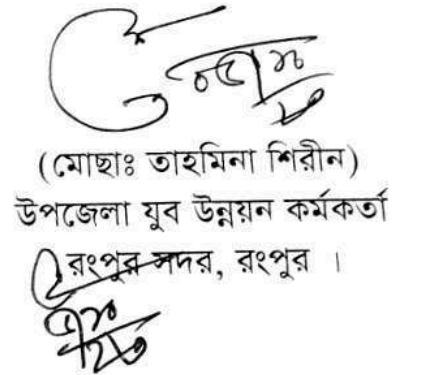 (মোছাঃ তাহমিনা শিরীন)
উপজেলা যুব উন্নয়ন কর্মকর্তা
রংপুর সদর, রংপুর ।